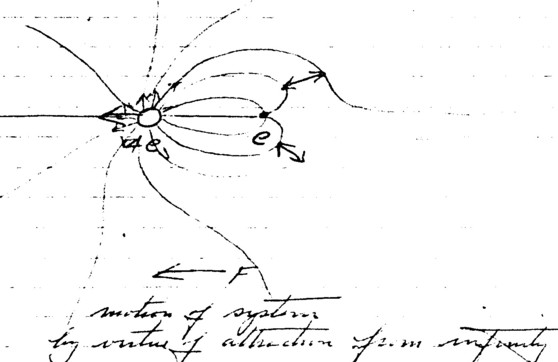 e
e
F
motion of system
by virtue of attraction from infinity